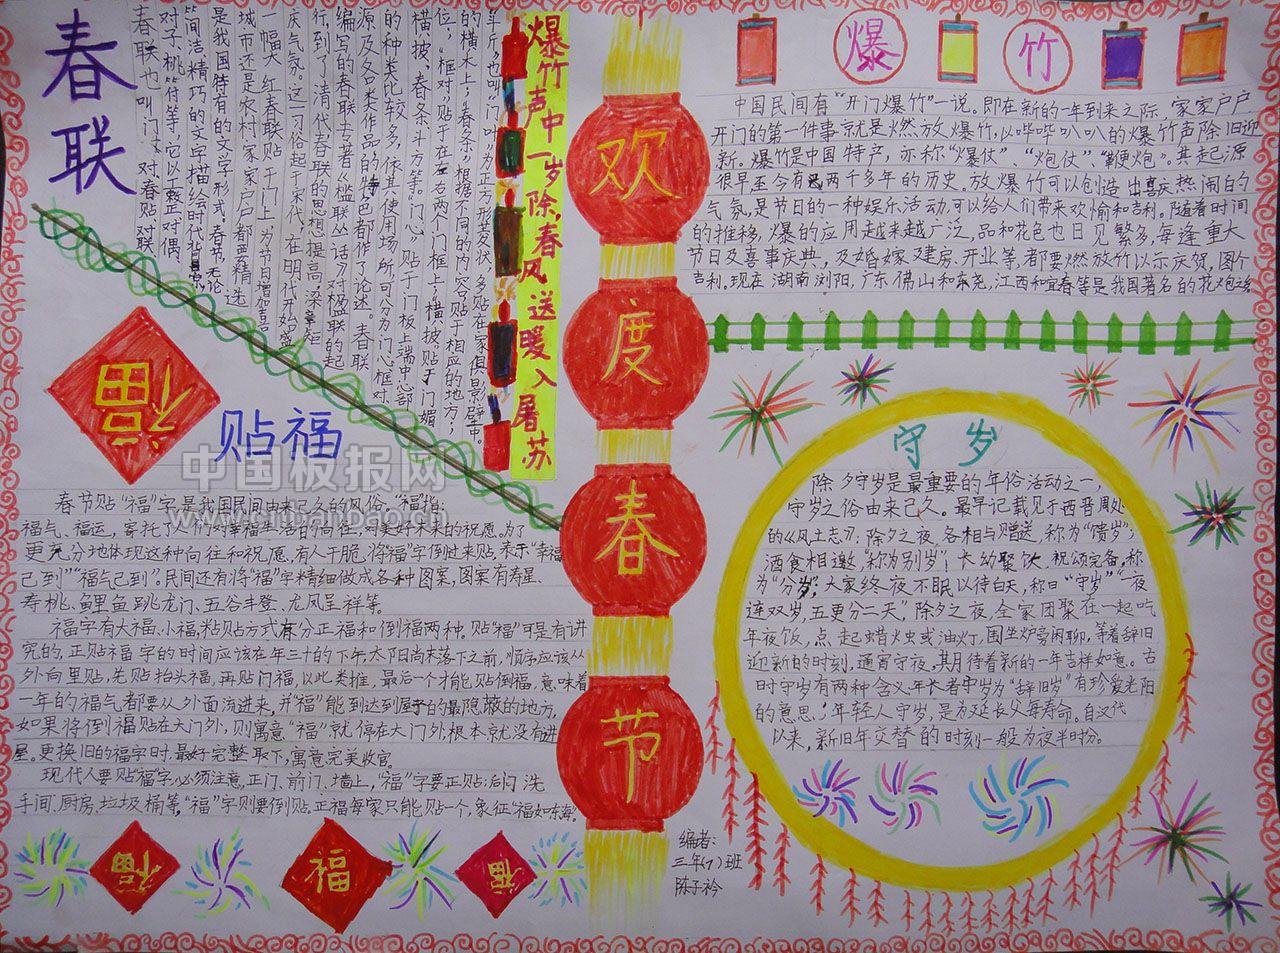 春联
春联也叫门对、春贴、对联、
对子、桃符等,它以工整、对偶、
简洁、精巧的文字描绘时代背景,
是我国特有的文学形式。春节,无论
城市还是农村,家家户户都要精选
一幅大红春联贴于门上,为节日增加喜
庆气氛。这一习俗起于宋代,在明代开始盛
行,到了清代,春联的思想提高深
编写的春联专著《槛联丛话》对楹联的起
源及各类作品的特色都作了论述。春联
的种类比较多,依其使用场所,可分为门心、框对、
横披、春条、斗方等。“门心”贴于门板上端中心部
位;“框对”贴于左右两个门框上;“横披”贴于门媚
的横木上;“春条”根据不同的内容贴于相应的地方;
“斗斤”也叫“门叶”,为正方形菱状,多贴在家俱、影壁中。
爆竹声中一岁除,春风送暖入屠苏
欢
度
春
节
爆 竹
中国民间有“开门爆竹”一说。即在新的一年到来之际,家家户户
开门的第一件事就是燃放爆竹,以哔哔叭叭的爆竹声除旧迎
新。爆竹是中国特产,亦称“爆仗”、“炮仗”、“鞭炮”。其起源
很早,至今有两千多年的历史。放爆竹可以创造出喜庆热闹的
气氛,是节日的一种娱乐活动,可以给人们带来欢愉和吉利。随着时间
的推移,爆的应用越来越广泛,品和花色也日见繁多,每逢重大
节日及喜事庆典,及婚嫁、建房、开业等,都要燃放竹以示庆贺,图个
吉利。现在,湖南浏阳,广东佛山和东尧,江西和宜春等是我国著名的花炮之乡
福
贴福
春节贴“福”字是我国民间由来已久的风俗。“福”指:
福气、福运,寄托了人们对幸福生活的向往,对美好未来的祝愿。为了
更充分地体现这种向往和祝愿,有人干脆将“福”字倒过来贴,表示“幸福
已到”“福气已到”。民间还有将“福”字精细做成各种图案,图案有寿星、
寿桃、鲤鱼跳龙门、五谷丰登、龙凤呈祥等。
福字有大福、小福,粘贴方式有分正福和倒福两种,贴“福”可是有讲
究的,正贴福字的时间应该在年三十的下午,太阳尚未落下之前,顺序应该从
外向里贴,先贴抬头福,再贴门福,以此类推,最后一个才能贴倒福,意味着
一年的福气都要从外面流进来,并“福”能到达到屋子的最隐蔽的地方,
如果将倒福贴在大门外,则寓意“福”就停在大门外,根本就没有进
屋。更换旧的福字时,最好完整取下,寓意完美收官。
现代人要贴“福”字必须注意,正门、前门、墙上,“福”字要正贴;后门、洗
手间、厨房、垃圾桶等,“福”字则要倒贴,正福每家只能贴一个,象征“福如东海”。
福
福
福
守岁
除夕守岁是最重要的年俗活动之一,
守岁之俗由来已久。最早记载见于西晋周处
的《风土志》:除夕之夜,各相与赠送,称为“馈岁”;
酒食相邀,“称为别岁”;长幼聚饮,祝颂完备,称
为“分岁”;大家终夜不眠,以待白天,称曰“守岁”“一夜
连双岁,五更分二天”,除夕之夜,全家团聚在一起,吃
年夜饭,点起蜡火虫或油灯,围坐炉旁闲聊,等着辞旧
迎新的时刻,通宵守夜,其月待着新的一年吉祥如意。古
时守岁有两种含义:年长者守岁为“辞旧岁”,有珍爱光阴
的意思;年轻人守岁,是为延长父母寿命。自汉代
以来,新旧年交替的时刻一般为夜半时份。
编者:
三年(1)班
陈子衿
中国板报网
www.cnbanbao.cn